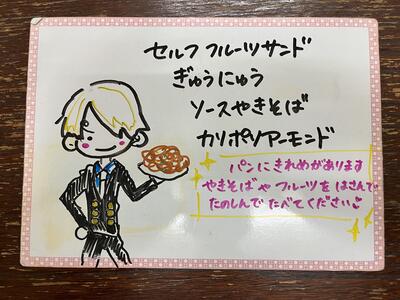 セルフ フルーツサンド
ぎゅうにゅう
ソースやきそば
カリポリアーモンド
パンにきれめがあります
やきそばや フルーツを はさんで
たのしんで たべてください♪